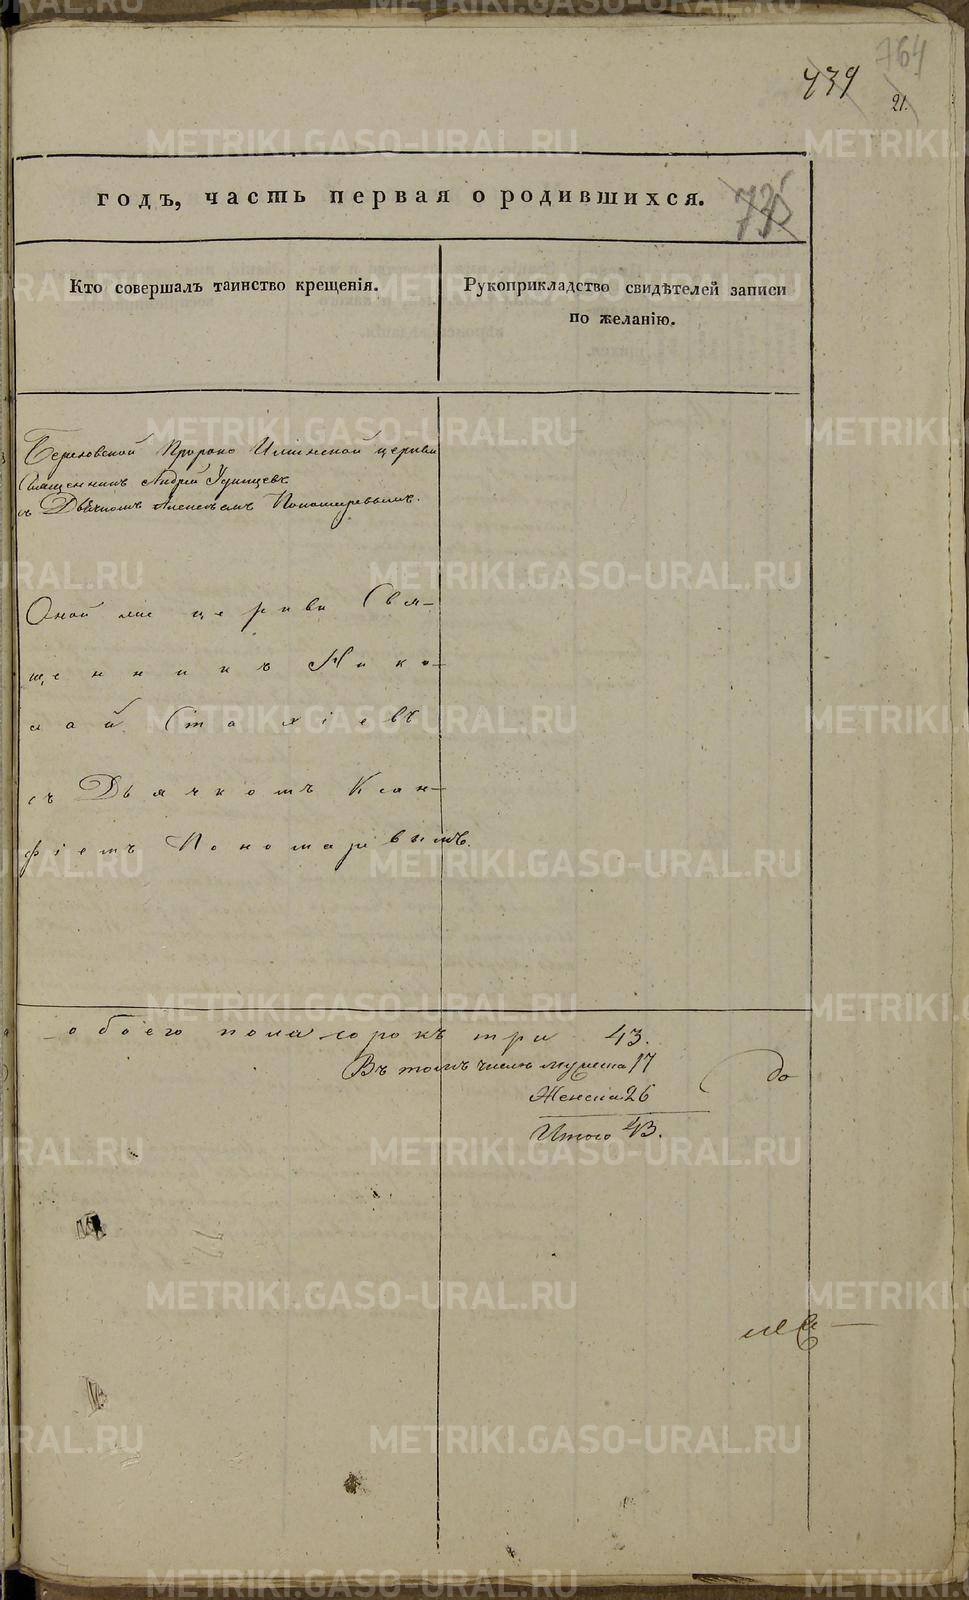 764
439
21.
годъ, часть первая о родившихся.
Кто совершалъ таинство крещенія.
Рукоприкладство свидѣтелей записи
по желанію.
Пророко Илiинской церкви
Священникъ Андрей
съ Дьячкомъ Алексѣемъ Пономаревымъ.
Оной же церкви Свя-
щенникъ Нико-
лай Стахіевъ
съ Дьячкомъ Ксан-
фіемъ Пономаревымъ.
обоего пола сорокъ три 43.
Въ томъ числѣ мужеска 17
Женска 26
Итого 43.
до
METRIKI.GASO-URAL.RU